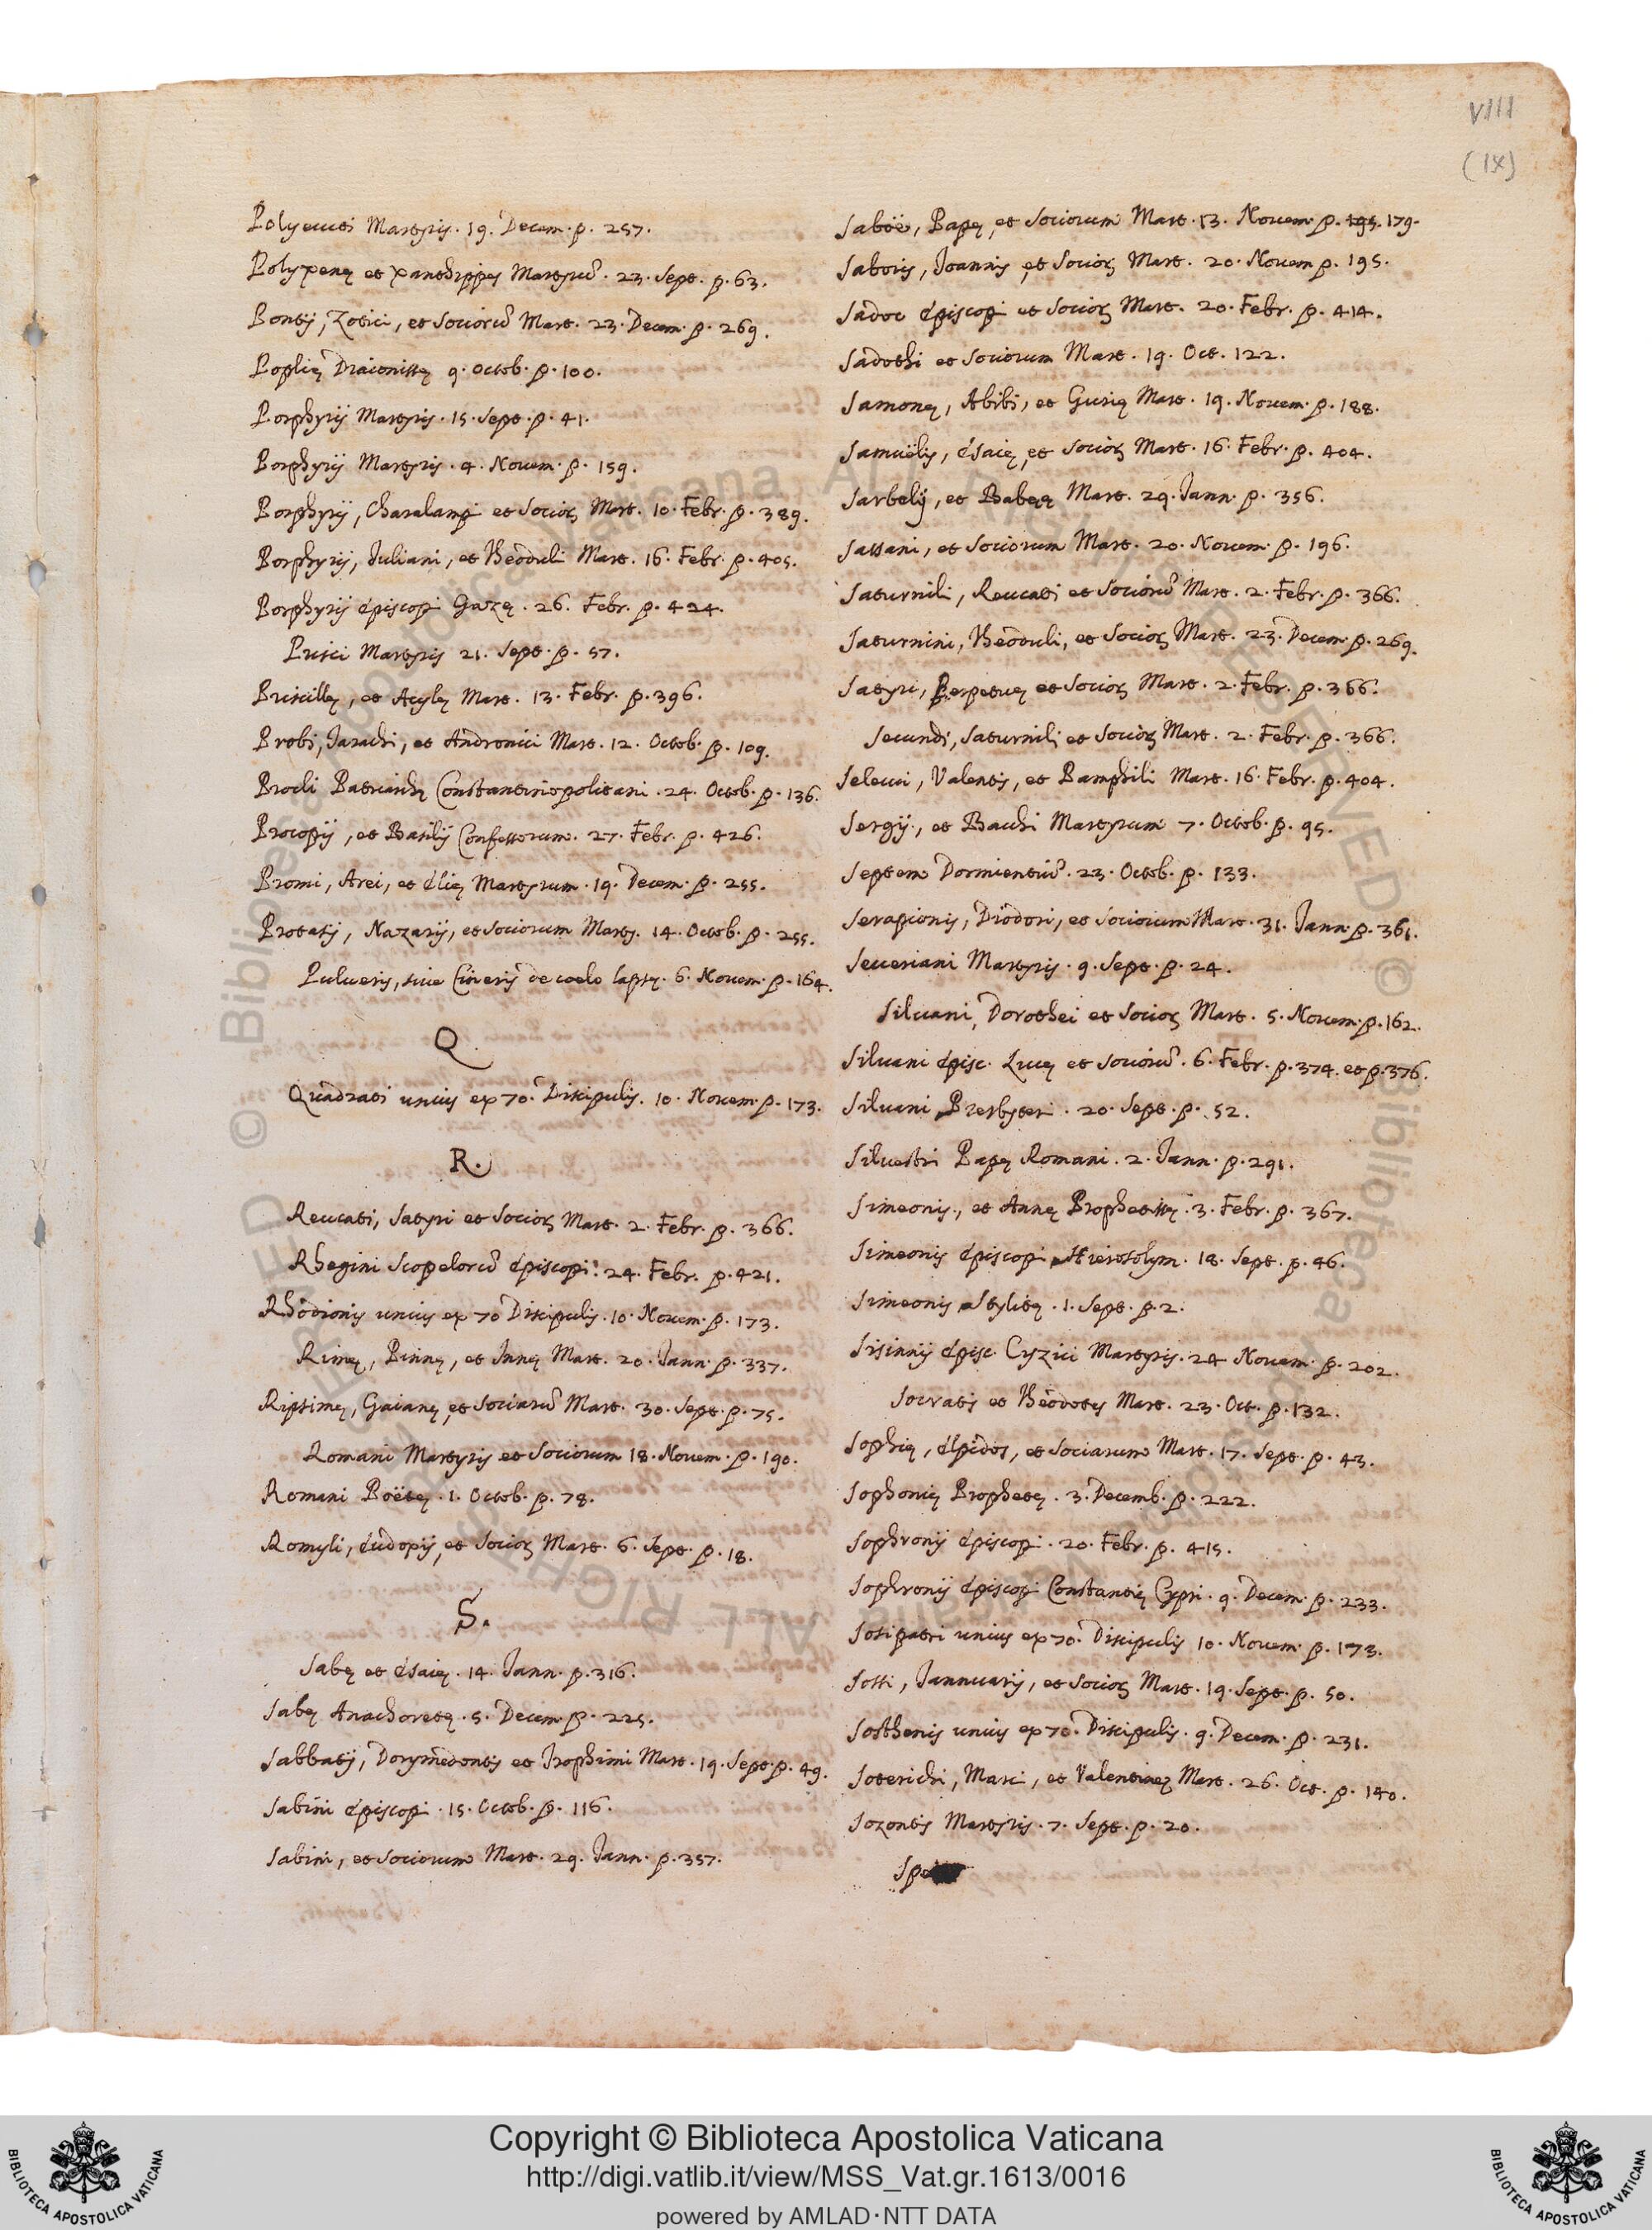 VIII
(IX)
Polyeucti Martyris. 19. Decem. p. 257.
Polyxenę et Xanthippęs Martyrũ. 23. Sept. p. 63.
Pontij, Zotici, et Sociorũ Mart. 23. Decem. p. 269.
Poplię Diaconissę 9. Octob. p. 100.
Porphyrij Martyris. 15. Sept. p. 41.
Porphyrij Martyris. 4. Novem. p. 159.
Porphyrij, Charalampi et Socioꝝ Mart. 10. Febr. p. 389.
Porphyrij, Juliani, et Theoduli Mart. 16. Febr. p. 405.
Porphyrij Episcopi Gazę. 26. Febr. p. 424.
Prisci Martyris 21. Sept. p. 57.
Priscillę, et Acylę Mart. 13. Febr. p. 396.
Probi, Tarachi, et Andronici Mart. 12. Octob. p. 109.
Procli Patriarchę Constantinopolitani. 24. Octob. p. 136.
Procopij, et Basilij Confessorum. 27. Febr. p. 426.
Promi, Arei, et Elię Martyrum. 19. Decem. p. 255.
Protasij, Nazarij, et Sociorum Marty. 14. Octob. p. 255.
Pulveris, sive Cineris de coelo lapsę. 6. Novem. p. 164.
Q.
Quadrati unius ex 70. Discipulis. 10. Novem. p. 173.
R.
Reucati, Satyri et Socioꝝ Mart. 2. Febr. p. 366.
Rhegini Scopelorũ Episcopi. 24. Febr. p. 421.
Rhodionis unius ex 70 Discipulis. 10. Novem. p. 173.
Rimę, Pinnę, et Innę Mart. 20. Jann. p. 337.
Ripsimę, Gaianę, et Sociarũ Mart. 30. Sept. p. 75.
Romani Martyris et Sociorum 18. Novem. p. 190.
Romani Poëtę. 1. Octob. p. 78.
Romyli, Eudoxij, et Socioꝝ Mart. 6. Sept. p. 18.
S.
Sabę et Esaię. 14. Jann. p. 316.
Sabę Anachoretę. 5. Decem. p. 225.
Sabbatij, Dorymedontis et Trophimi Mart. 19. Sept. p. 49.
Sabini Episcopi. 15. Octob. p. 116.
Sabini, et Sociorum Mart. 29. Jann. p. 357.
Saboë, Papę, et Sociorum Mart. 13. Novem. p. 195. 179.
Saboris, Joannis, et Socioꝝ Mart. 20. Novem p. 195.
Sadoc Episcopi et Socioꝝ Mart. 20. Febr. p. 414.
Sadothi et Sociorum Mart. 19. Oct. 122.
Samonę, Abibi, et Gurię Mart. 19. Novem. p. 188.
Samuëlis, Esaię, et Socioꝝ Mart. 16. Febr. p. 404.
Sarbelij, et Babęę Mart. 29. Jann. p. 356.
Sassani, et Sociorum Mart. 20. Novem. p. 196.
Saturnili, Reucati et Sociorũ Mart. 2. Febr. p. 366.
Saturnini, Theoduli, et Socioꝝ Mart. 23. Decem. p. 269.
Satyri, Perpetuę et Socioꝝ Mart. 2. Febr. p. 366.
Secundi, Saturnili et Socioꝝ Mart. 2. Febr. p. 366.
Seleuci, Valentis, et Pamphili Mart. 16. Febr. p. 404.
Sergij, et Bacchi Martyrum 7. Octob. p. 95.
Septem Dormientiũ. 23. Octob. p. 133.
Serapionis, Diodori, et Sociorum Mart. 31. Jann. p. 361.
Severiani Martyris. 9. Sept. p. 24.
Silvani, Dorothei et Socioꝝ Mart. 5. Novem. p. 162.
Silvani Episc. Lucę et Sociorũ. 6. Febr. p. 374. et p. 376.
Silvani Presbyteri. 20. Sept. p. 52.
Silvestri Papę Romani. 2. Jann. p. 291.
Simeonis, et Annę Prophetissę. 3. Febr. p. 367.
Simeonis Episcopi Hierosolym. 18. Sept. p. 46.
Simeonis Stylitę. 1. Sept. p. 2.
Sisinnij Episc. Cyzici Martyris. 24 Novem. p. 202.
Socratis et Theodotęs Mart. 23. Oct. p. 132.
Sophię, Elpidos, et Sociarum Mart. 17. Sept. p. 43.
Sophonię Prophetę. 3. Decemb. p. 222.
Sophronij Episcopi. 20. Febr. p. 415.
Sophronij Episcopi Constantię Cypri. 9. Decem. p. 233.
Sosipatri unius ex 70. Discipulis 10. Novem. p. 173.
Sossi, Jannuarij, et Socioꝝ Mart. 19. Sept. p. 50.
Sosthenis unius ex 70. Discipulis. 9. Decem. p. 231.
Soterichi, Marci, et Valentinę Mart. 26. Oct. p. 140.
Sozontis Martyris. 7. Sept. p. 20.
Copyright © Biblioteca Apostolica Vaticana
http://digi.vatlib.it/view/MSS_Vat.gr.1613/0016
powered by AMLAD·NTT DATA
BIBLIOTECA APOSTOLICA VATICANA
BIBLIOTECA APOSTOLICA VATICANA